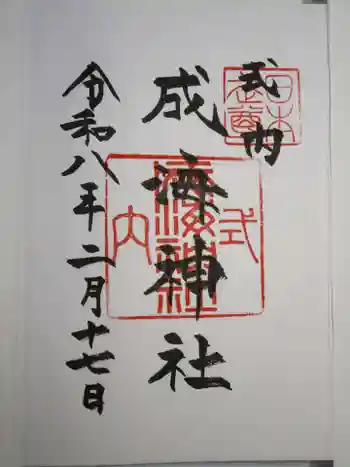 式内
成海神社
令和八年二月十七日
式内